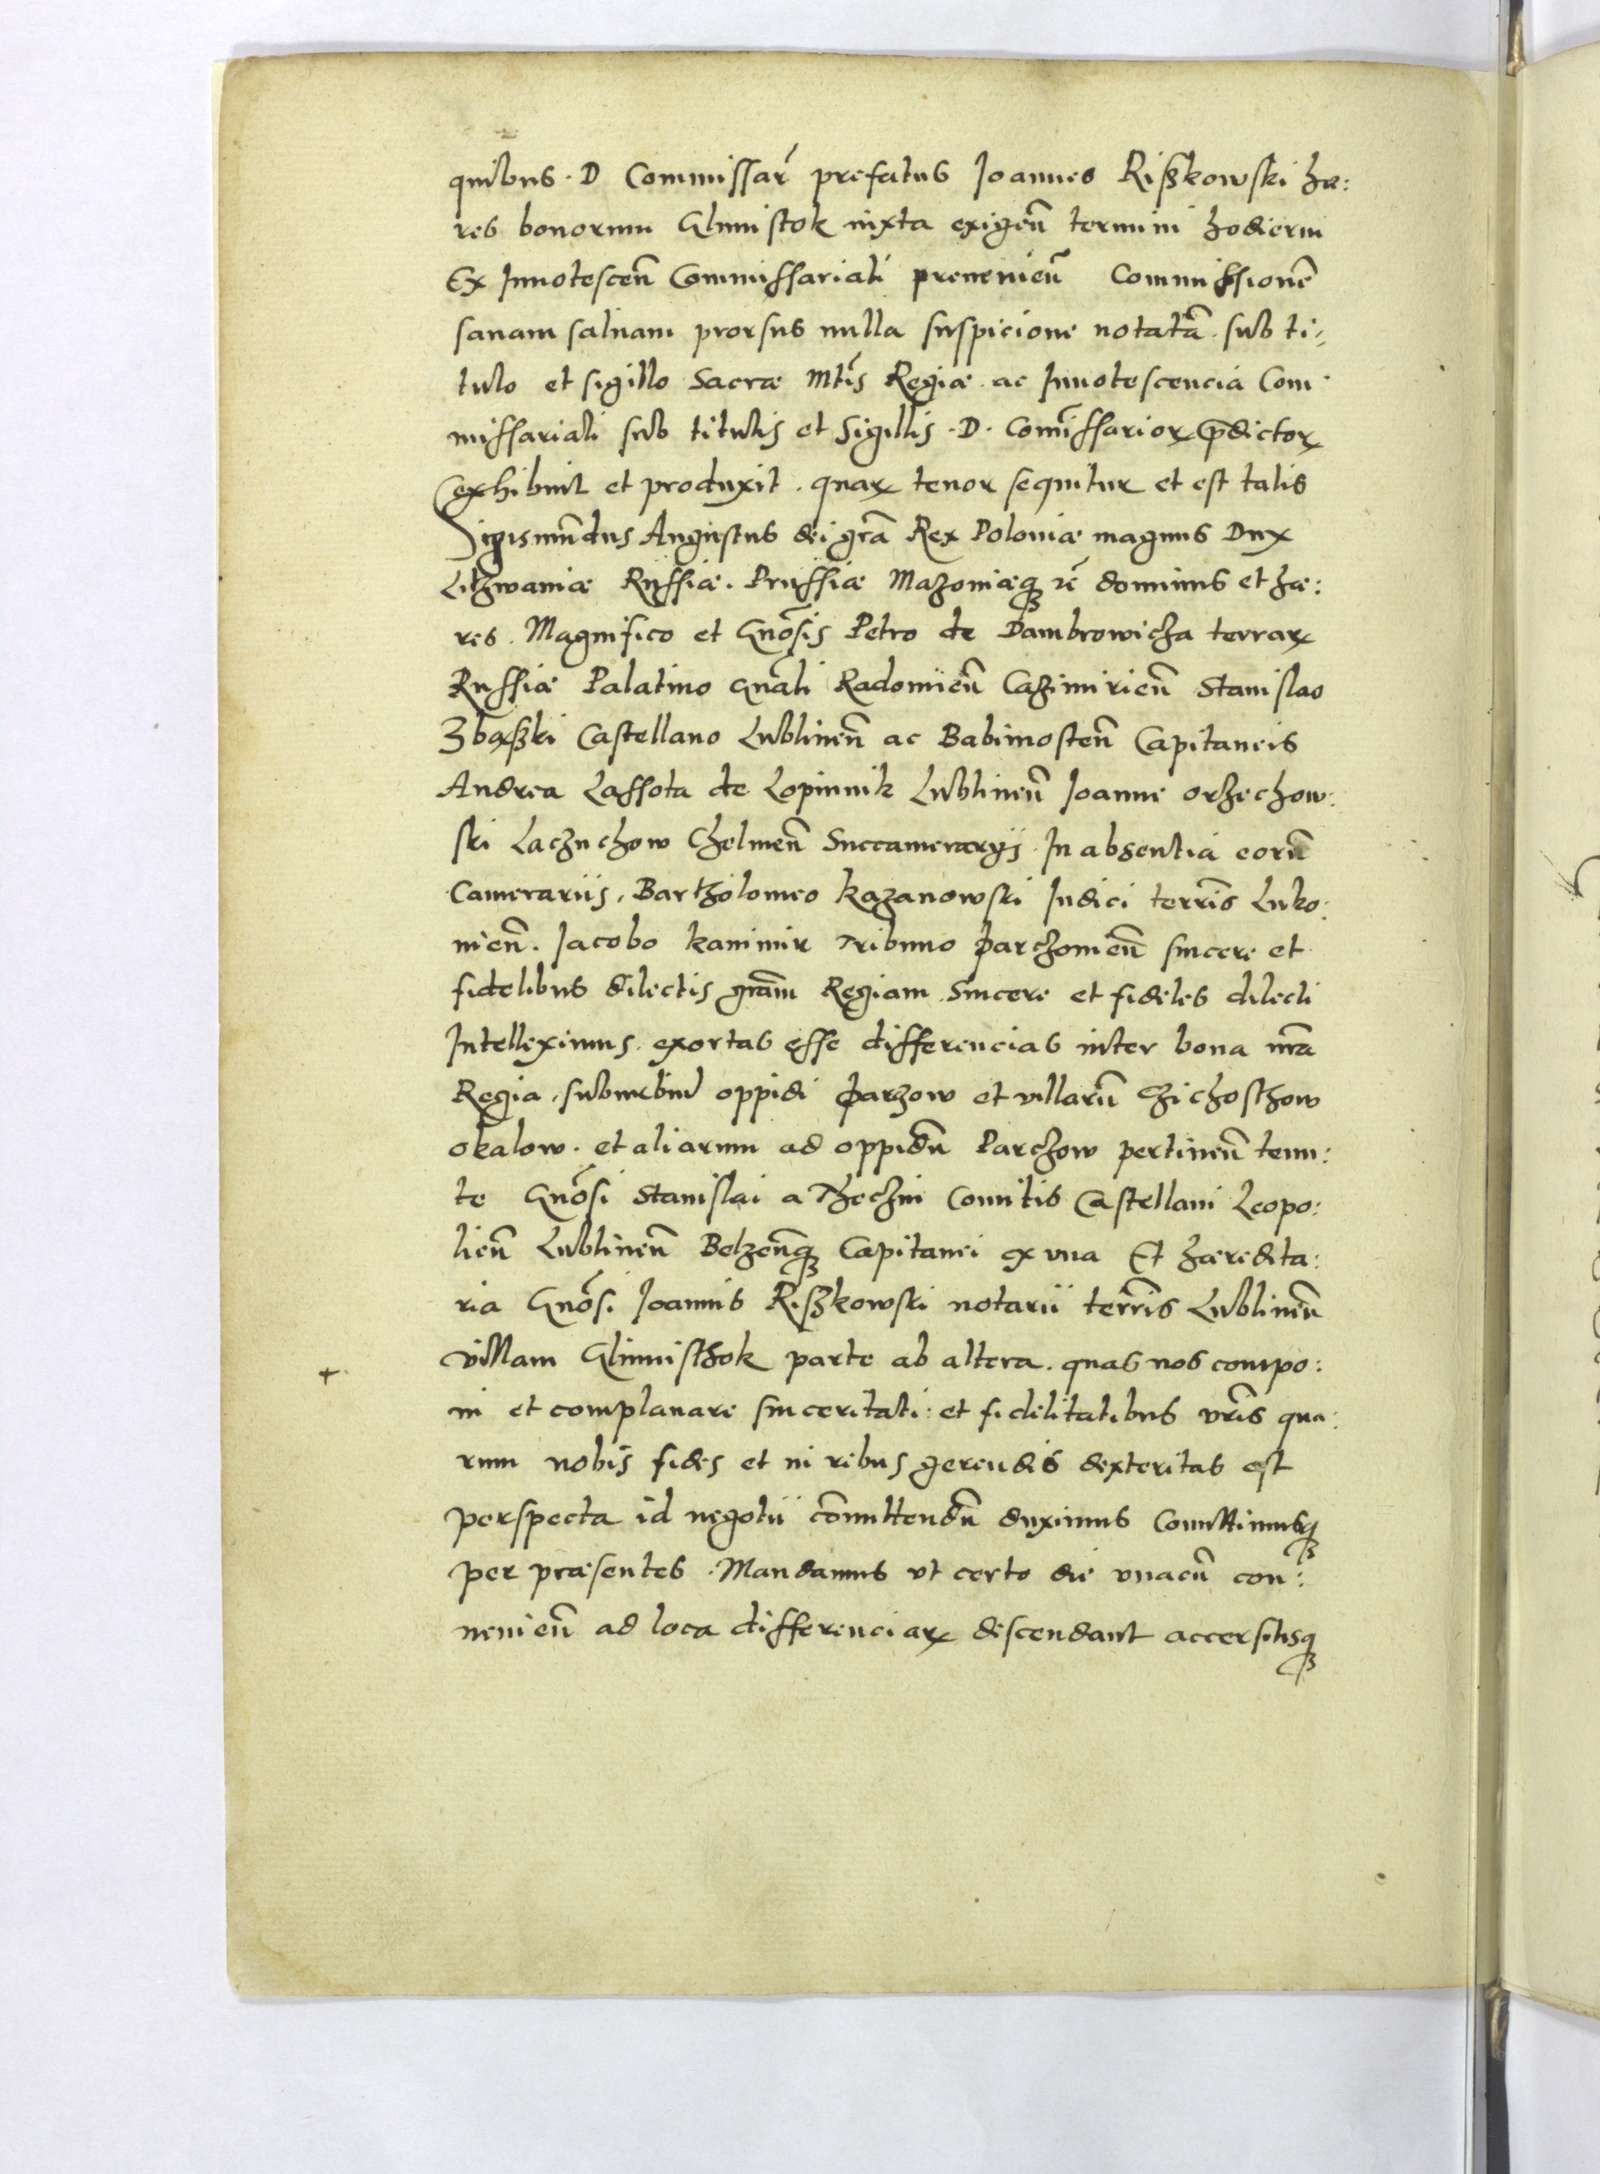 quibus · D Commissar̃ prefatus Joannes Risskowski hæ:
res bonorum Glinnistok iuxta exigeñ termini hodierni
Ex Innotesceñ Commissariali preueniеñ Commissionẽ
sanam saluam prorsus nulla suspicione notatã. sub ti,
tulo et sigillo Sacræ Mtis̃ Regiæ. ac Innotescencia Com
missariali sub titulis et Sigillis · D · Com̃issarioꝝ p̃dictoꝝ
exhibuit et produxit. quaꝝ tenor sequitur et est talis
Sigismũdus Augustus dei grã Rex Poloniæ magnus Dux
Lithwaniæ Russiæ. Prussiæ Mazoniæqꝫ rẽ dominus et hæ:
res. Magnifico et Gnõsis Petro de Dambrowicza terraꝝ
Russiæ Palatino Gnãli Radomieñ Cazimirieñ Stanislao
Zbąski Castellano Lublineñ ac Babimosteñ Capitaneis
Andrea Lassota de Lopiennik Lublineñ Joanne orzechow:
ski Laczuchow Chelmeñ Succamerarijs In absentia eorũ
Camerariis, Bartholomeo kazanowski Judici terris̃ Luko:
nieñ. Jacobo kanimir Tribuno parczouieñ sincere et
fidelibus dilectis grãm Regiam. Sincere et fideles dilecti
Intelleximus exortas esse differencias inter bona nrã
Regia, suburbiũ oppidi parzow et villarũ Chichosthow
okalow. et aliarum ad oppidũ Parczow pertineñ tenu:
te Gnõsi Stanislai a Theczin Comitis Castellani Leopo:
lieñ Lublineñ Belzeñqꝫ Capitanei ex vna Et hæredita:
ria Gnõsi Joannis Risskowski notarii terris̃ Lublineñ
villam Glinnisthok parte ab altera. quas nos compo:
ni et complanare sinceritati: et fidelitatibus vrĩs qua:
rum nobis fides et in rebus gerendis dexteritas est
perspecta id negotii cõmittendũ duximus Comittimusqꝫ
per præsentes. Mandamus vt certo die vnacũ con:
uenieñ ad loca differenciaꝝ descendant accersitisqꝫ